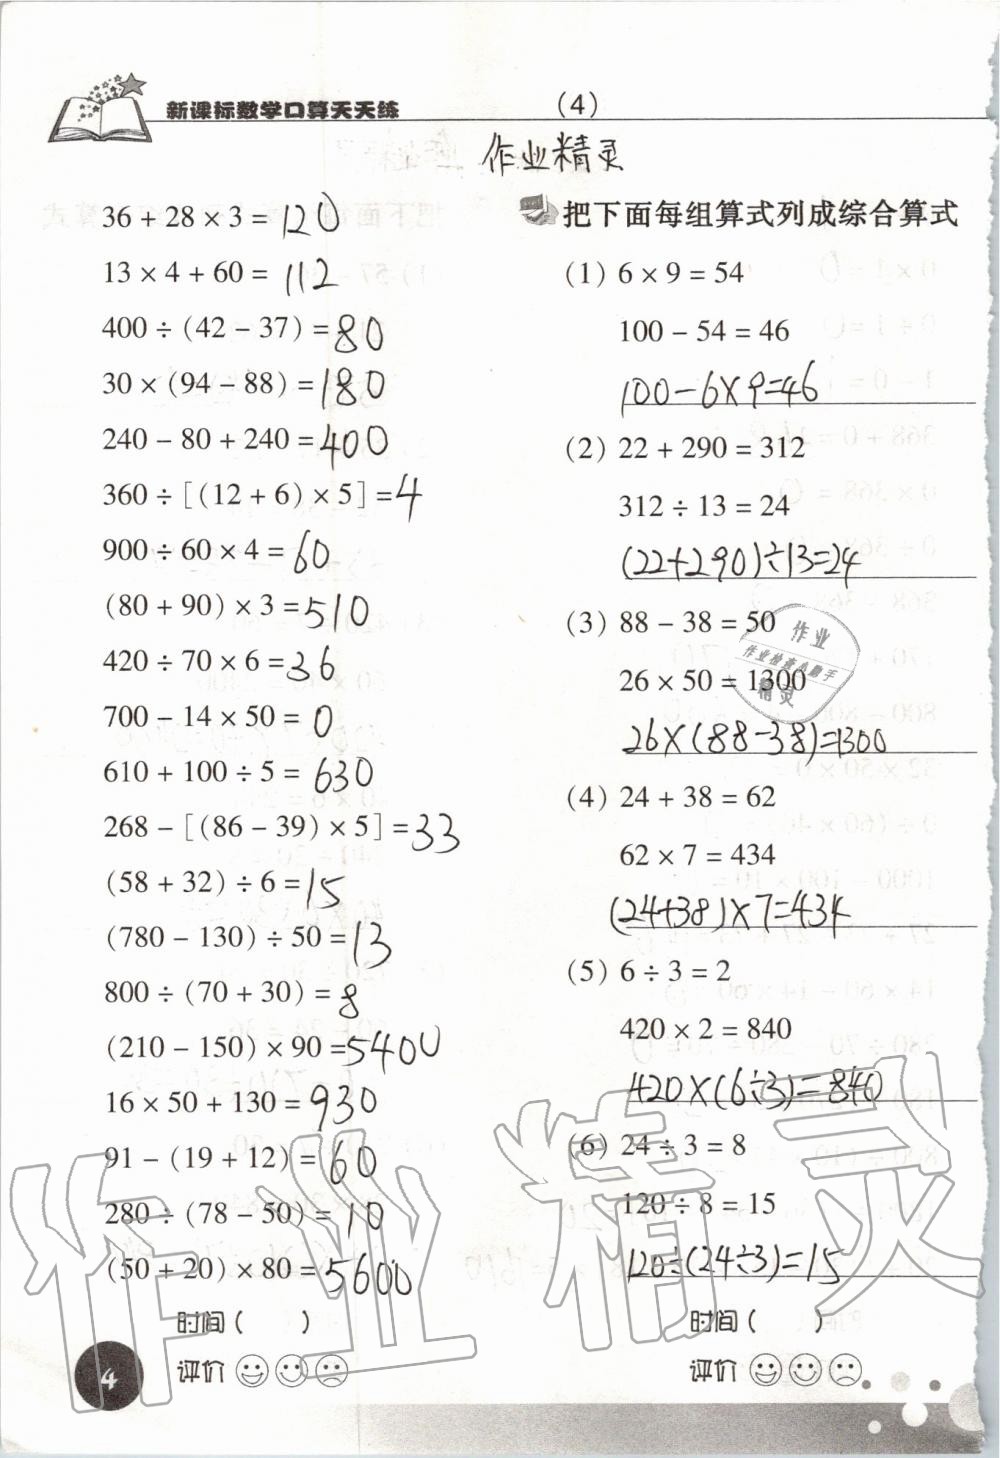 新课标数学口算天天练
(4)
作业精灵
36 + 28 × 3 = 120
13 × 4 + 60 = 112
400 ÷ (42 - 37) = 80
30 × (94 - 88) = 180
240 - 80 + 240 = 400
360 ÷ [(12 + 6) × 5] = 4
900 ÷ 60 × 4 = 60
(80 + 90) × 3 = 510
420 ÷ 70 × 6 = 36
700 - 14 × 50 = 0
610 + 100 ÷ 5 = 630
268 - [(86 - 39) × 5] = 33
(58 + 32) ÷ 6 = 15
(780 - 130) ÷ 50 = 13
800 ÷ (70 + 30) = 8
(210 - 150) × 90 = 5400
16 × 50 + 130 = 930
91 - (19 + 12) = 60
280 ÷ (78 - 50) = 10
(50 + 20) × 80 = 5600
时间 ( )
评价
把下面每组算式列成综合算式
(1) 6 × 9 = 54
100 - 54 = 46
100-6×9=46
(2) 22 + 290 = 312
312 ÷ 13 = 24
(22+290)÷13=24
(3) 88 - 38 = 50
26 × 50 = 1300
26×(88-38)=1300
(4) 24 + 38 = 62
62 × 7 = 434
(24+38)×7=434
(5) 6 ÷ 3 = 2
420 × 2 = 840
420×(6÷3)=840
(6) 24 ÷ 3 = 8
120 ÷ 8 = 15
120÷(24÷3)=15
时间 ( )
评价
作业
作业检查小助手
精灵
作业精灵
4